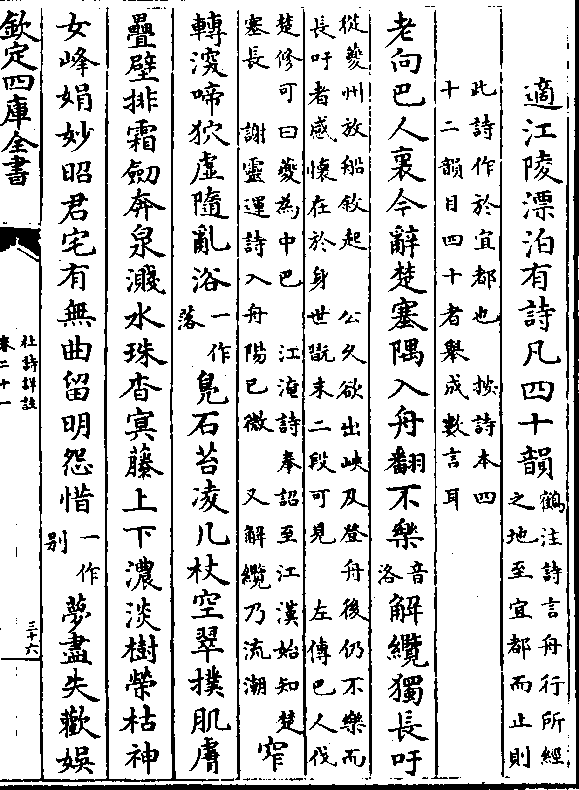 適江陵漂泊有詩凡四十韻鶴注詩言舟行所經
之地至宜都而止則
此詩作於宜都也　按詩本四
十二韻目四十者舉成數言耳
老向巴人裏今辭楚塞隅入舟翻不樂音
洛解纜獨長吁
從夔州放船敘起　公久欲出峽及登舟後仍不樂而
長吁者感懷在於身世觀末二段可見　左傳巴人伐
楚修可曰夔為中巴　江淹詩奉詔至江漢始知楚
塞長　謝靈運詩入舟陽已微　又解纜乃流潮　窄
轉深啼狖虛隨亂浴一作
落鳧石苔凌几杖空翠撲肌膚
疊壁排霜劒奔泉濺水珠杳㝠藤上下濃淡樹榮枯神
女峰娟妙昭君宅有無曲留明怨惜一作
别夢盡失歡娛
欽定四庫全書
杜詩詳註
卷二十一
三十六